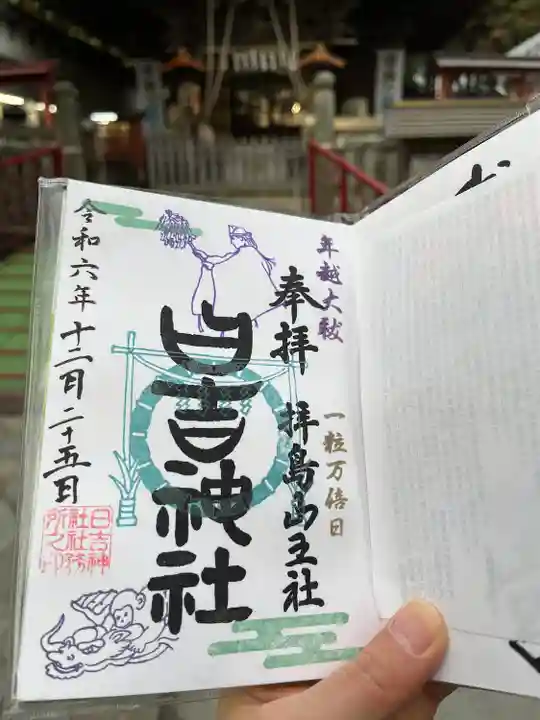 年越大祓
一粒万倍日
奉拝 拝島山王社
日吉神社
令和六年十二月二十五日
日吉神
社社務
所之印